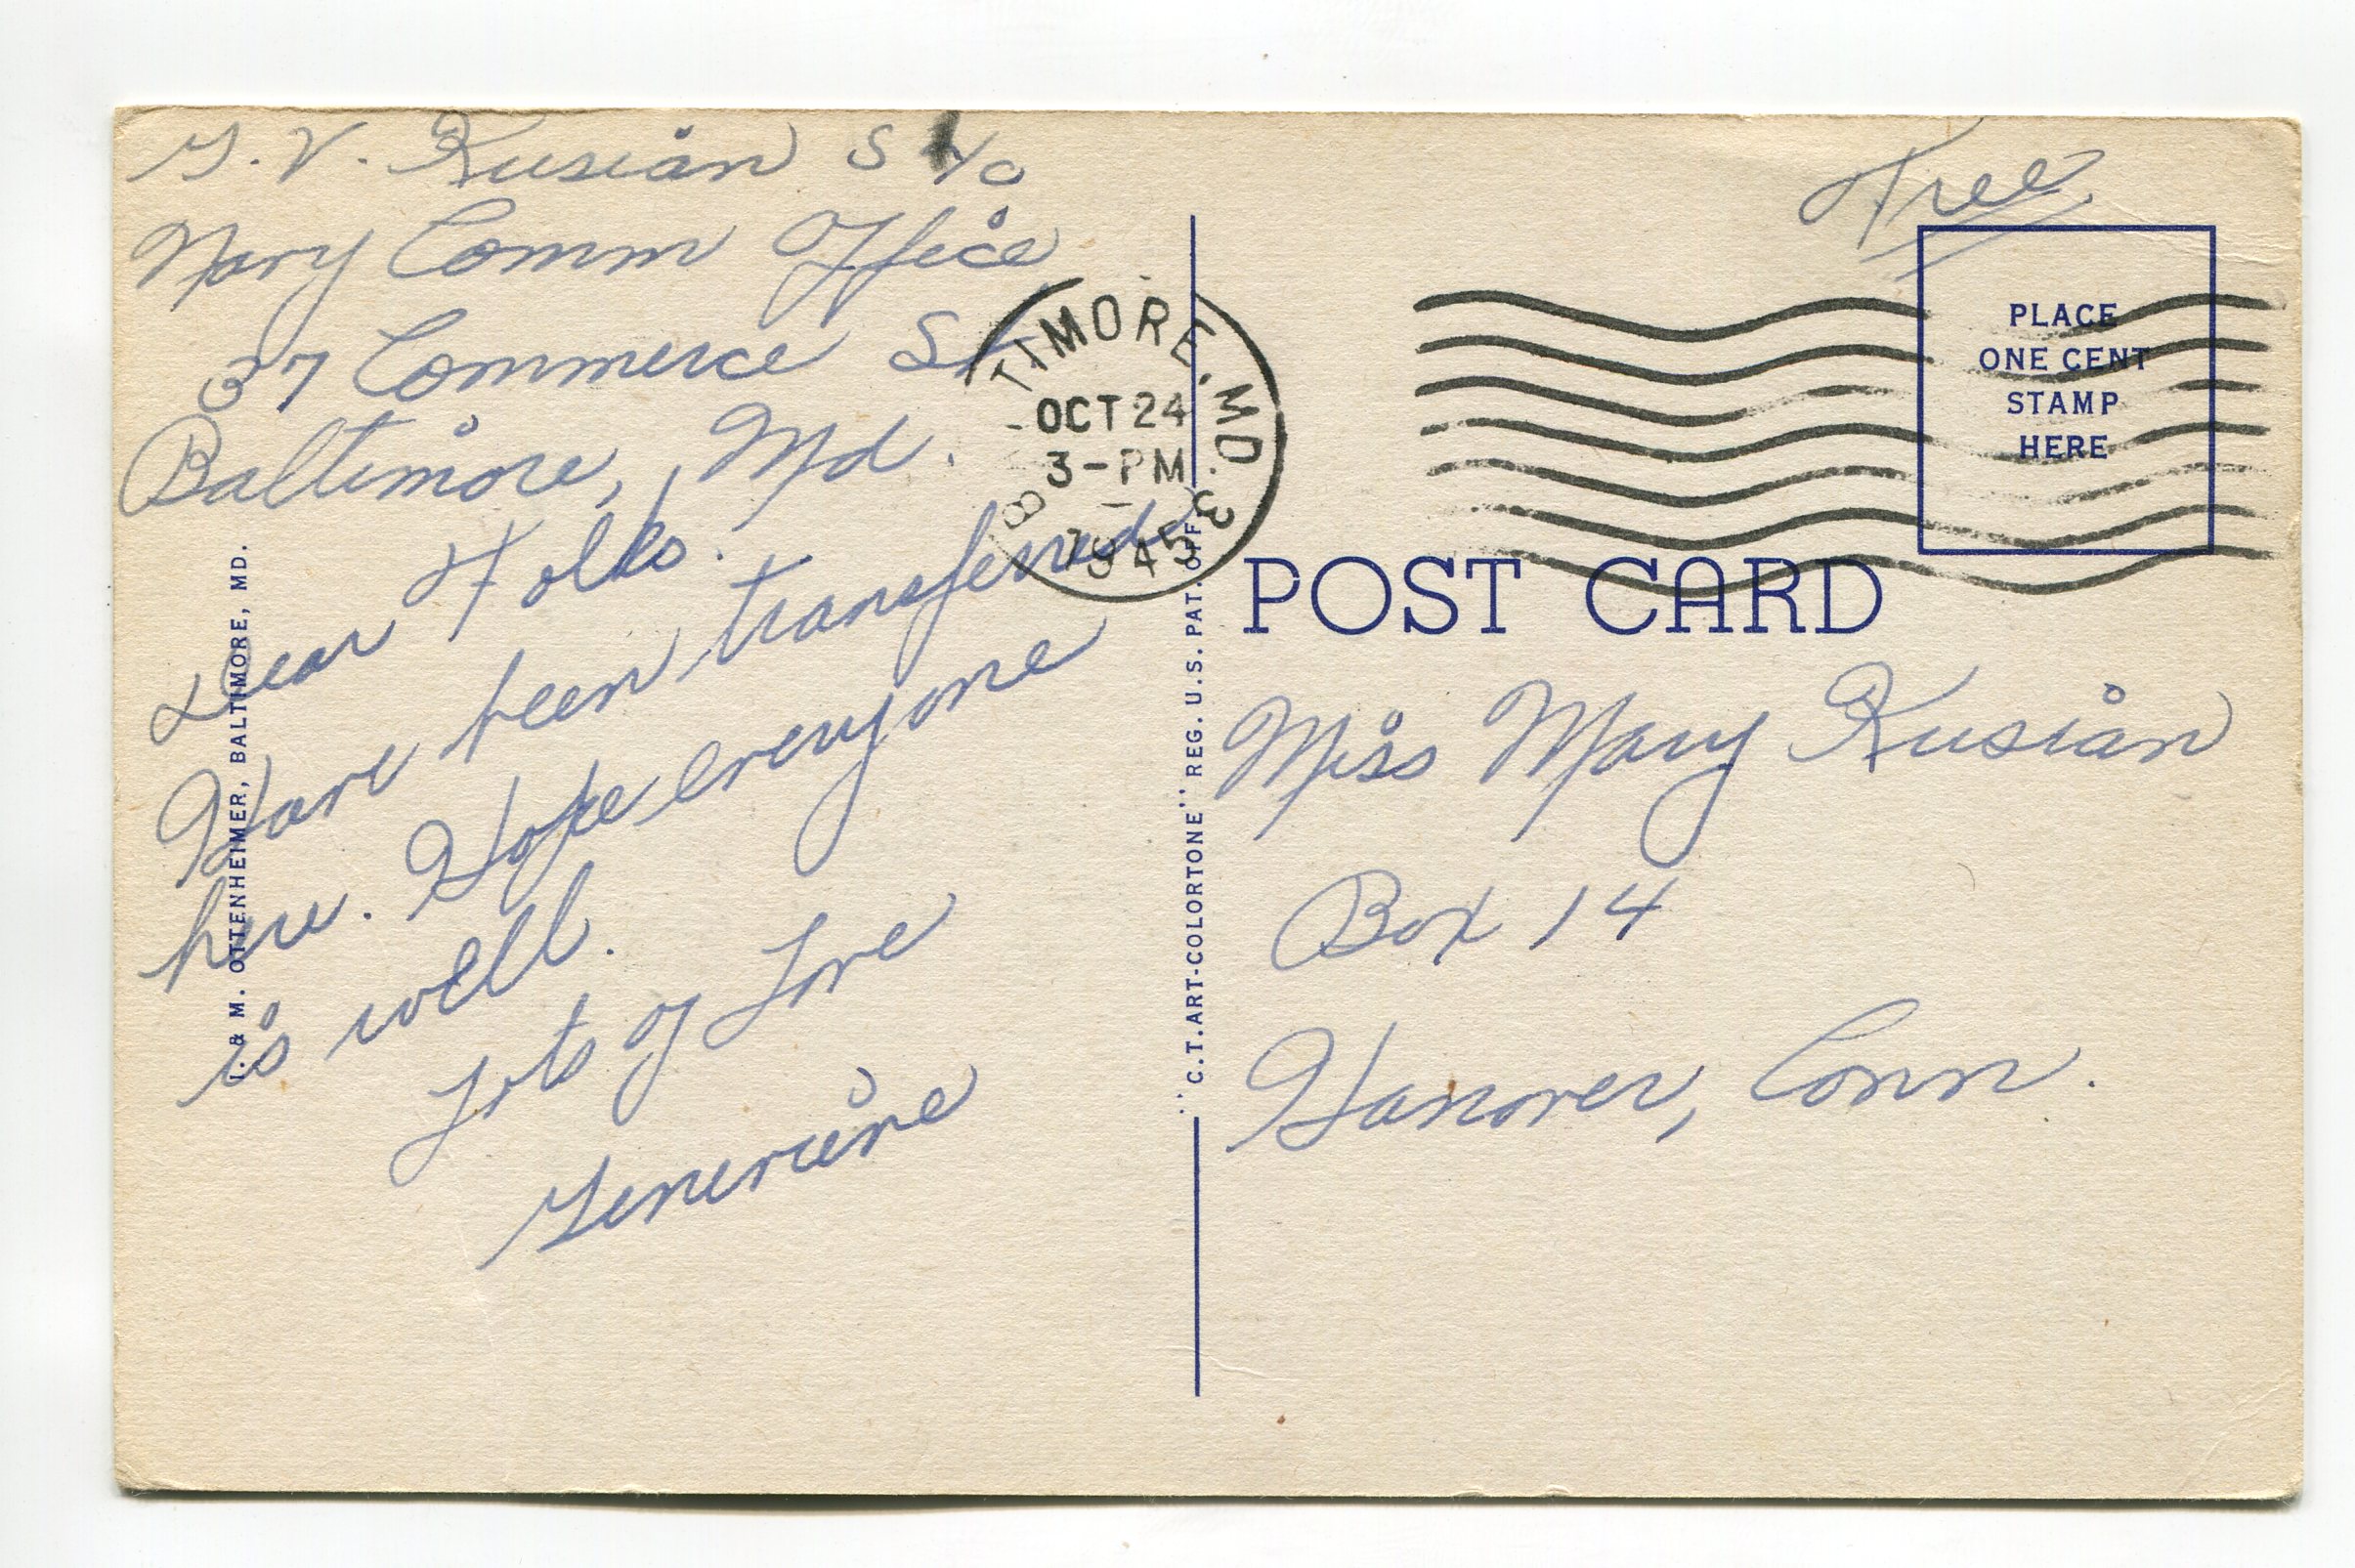 G. V. Kusian S 1/c
Navy Comm Office
37 Commerce St.
Baltimore, Md.
Dear Folks.
Have been transferred
here. Hope everyone
is well.
Lots of Love
Genevieve
I. & M. OTTENHEIMER, BALTIMORE, MD.
BALTIMORE, MD. 3
OCT 24
3-PM
1945
"C.T. ART-COLORTONE" REG. U.S. PAT. OFF.
Free
PLACE
ONE CENT
STAMP
HERE
POST CARD
Miss Mary Kusian
Box 14
Hanover, Conn.